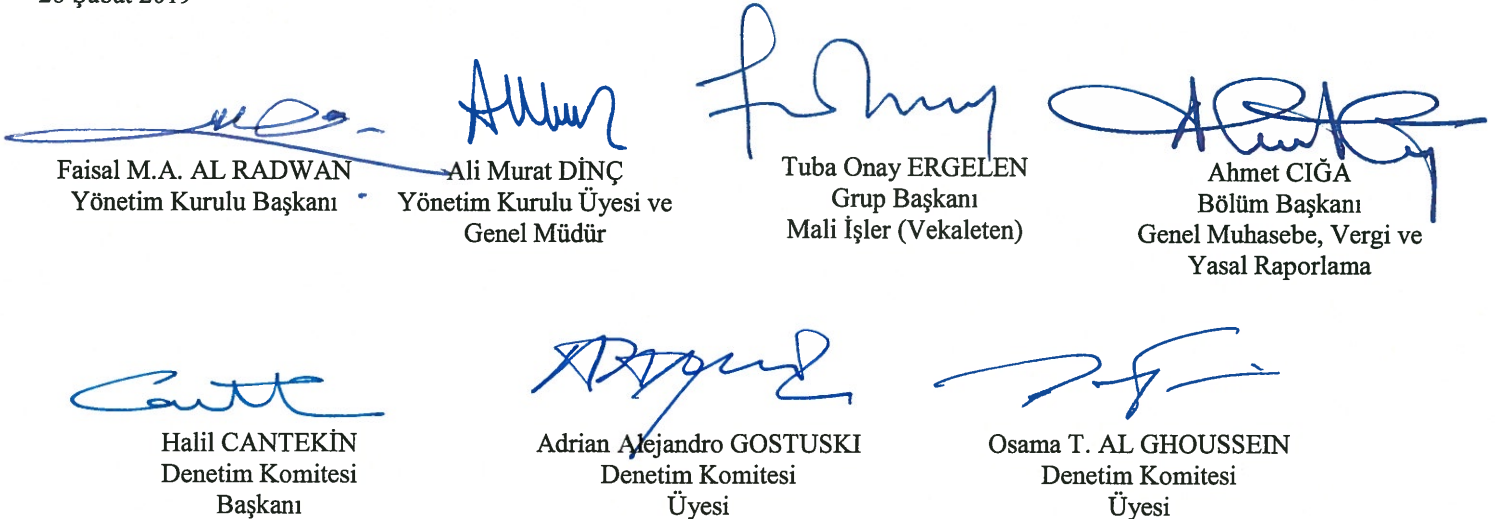 Şubat 2019
Faisal M.A. AL RADWAN
Yönetim Kurulu Başkanı
Ali Murat DİNÇ
Yönetim Kurulu Üyesi ve
Genel Müdür
Tuba Onay ERGELEN
Grup Başkanı
Mali İşler (Vekaleten)
Ahmet CIĞA
Bölüm Başkanı
Genel Muhasebe, Vergi ve
Yasal Raporlama
Halil CANTEKİN
Denetim Komitesi
Başkanı
Adrian Alejandro GOSTUSKI
Denetim Komitesi
Üyesi
Osama T. AL GHOUSSEIN
Denetim Komitesi
Üyesi